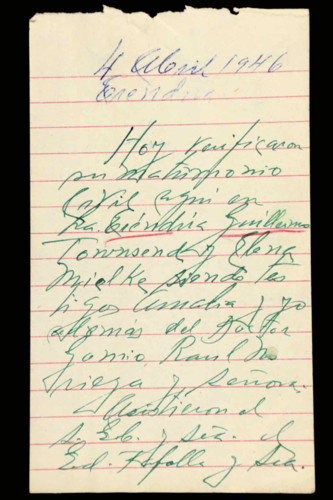 4 Abril 1946
Eréndira
Hoy verificaron
su matrimonio
civil aquí en
La Eréndira Guillermo
Townsend y Elena
Mielke siendo tes
tigos Amalia y yo
además del Doctor
Gamio, Raul No
riega y señora.
Asistieron el
s. Emb. y Sra. el
Ed. y Sra.